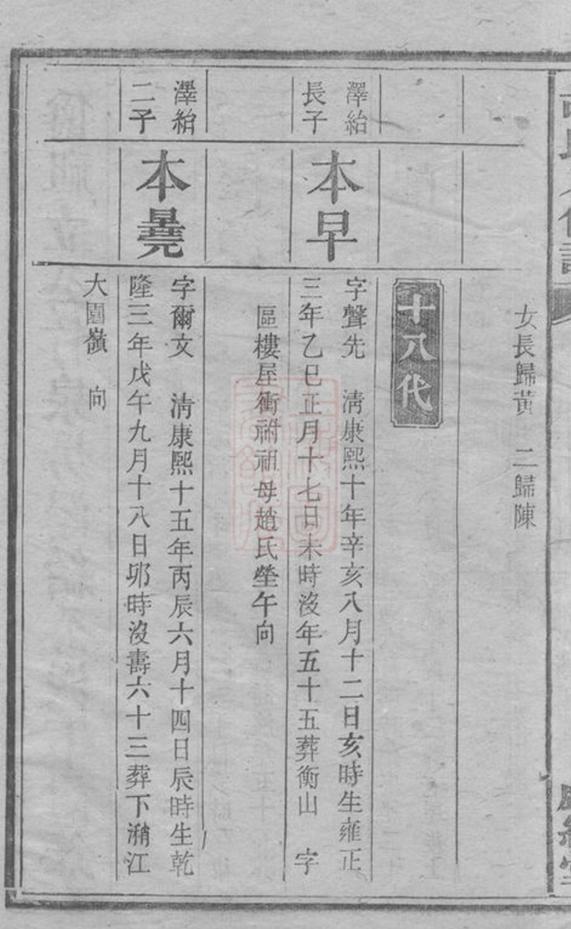 女長歸黃　二歸陳
十八代
澤紿
長子
本早
字聲先　清康熙十年辛亥八月十二日亥時生雍正
三年乙巳正月十七日未時沒年五十五葬衡山　字
區樓屋衝祔祖母趙氏塋午向
澤紿
二子
本曟
字爾文　清康熙十五年丙辰六月十四日辰時生乾
隆三年戊午九月十八日邜時沒壽六十三葬下濸江
大園嶺　向